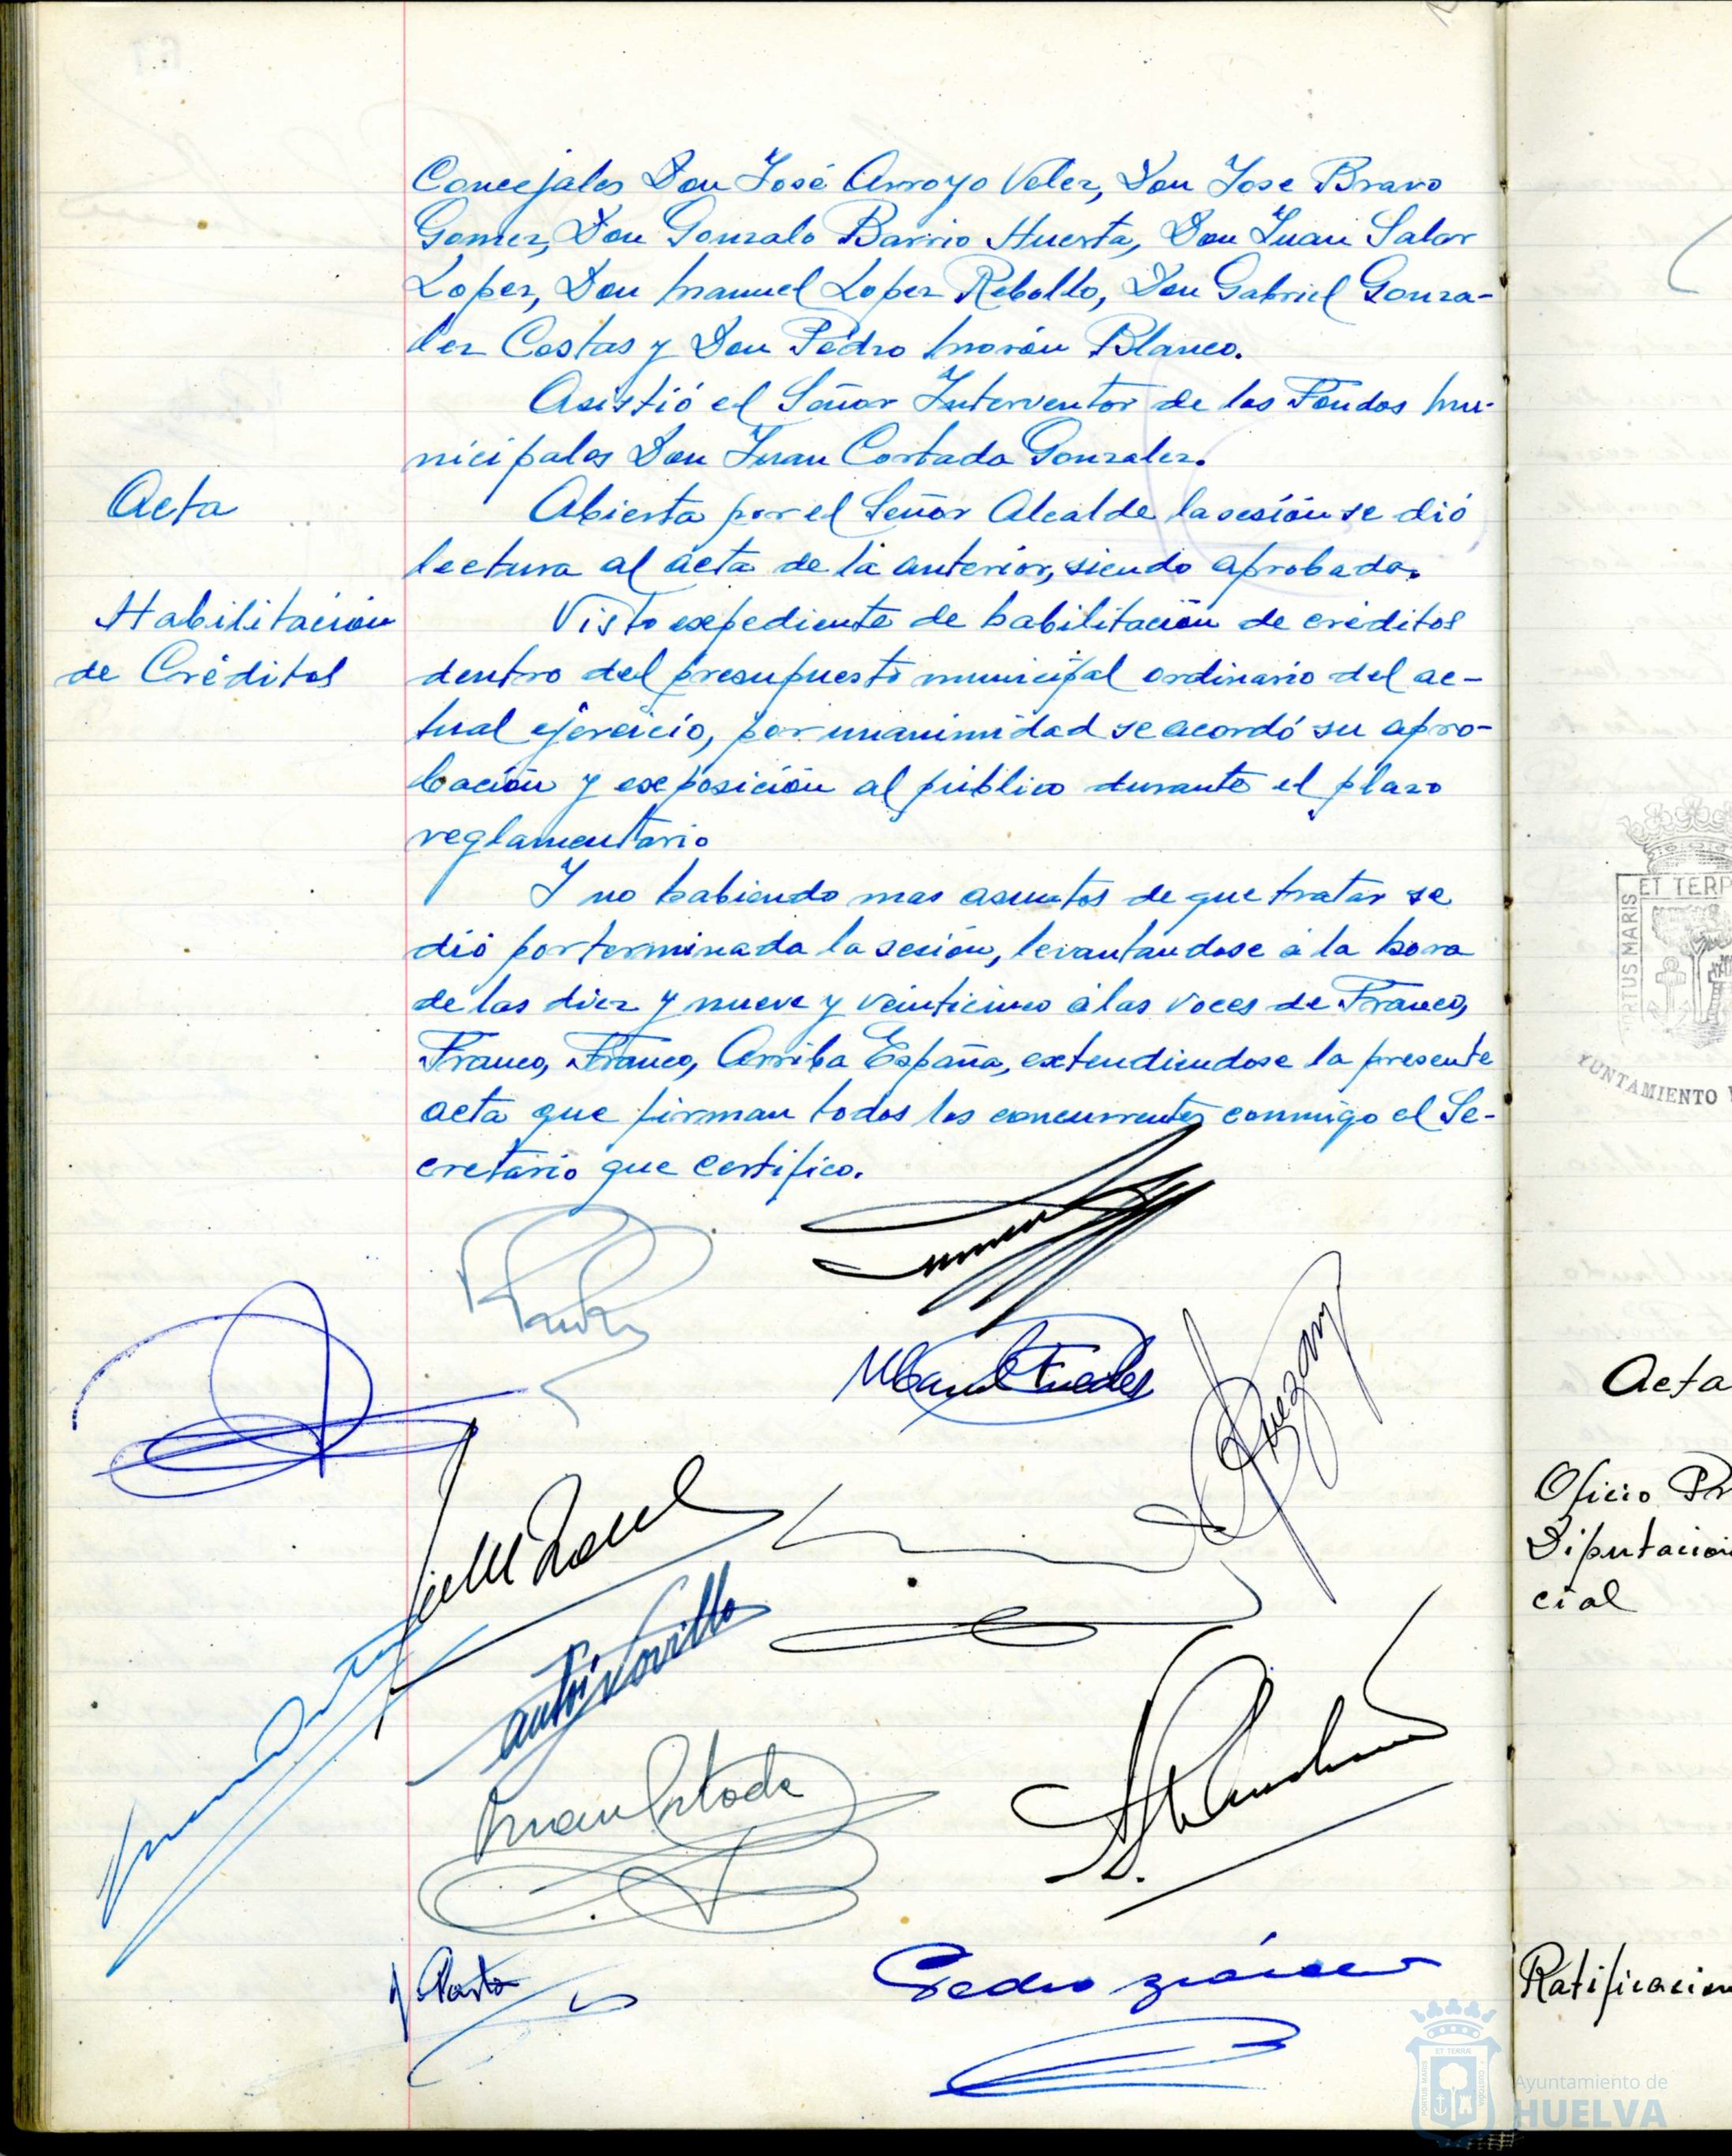 Concejales Don José Arroyo Velez, Don Jose Bravo
Gomez, Don Gonzalo Barrio Huerta, Don Juan Salar
Lopez, Don Manuel Lopez Rebollo, Don Gabriel Gonza-
lez Costas y Don Pedro Morón Blanco.
Asistió el Señor Interventor de los Fondos Mu-
nicipales Don Juan Cortada Gonzalez.
Acta
Abierta por el Señor Alcalde la sesión se dió
lectura al acta de la anterior, siendo aprobada.
Habilitación
de Créditos
Visto expediente de habilitación de créditos
dentro del presupuesto municipal ordinario del ac-
tual ejercicio, por unanimidad se acordó su apro-
bación y exposición al público durante el plazo
reglamentario
Y no habiendo mas asuntos de que tratar se
dió por terminada la sesión, levantandose á la hora
de las diez y nueve y veinticinco á las voces de Franco,
Franco, Franco, Arriba España, extendiendose la presente
acta que firman todos los concurrentes conmigo el Se-
cretario que certifico.
ET TERR
PORTUS MARIS
YUNTAMIENTO
Acta
Oficio Pr
Diputacion
cial
Ratificacion
Pedro
Ayuntamiento de
HUELVA